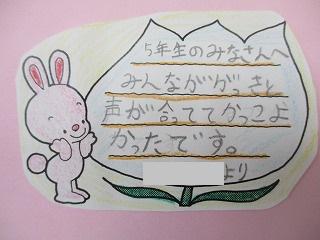 5年生のみなさんへ
みんなががっきと
声が合っててかっこよ
かったです。
より